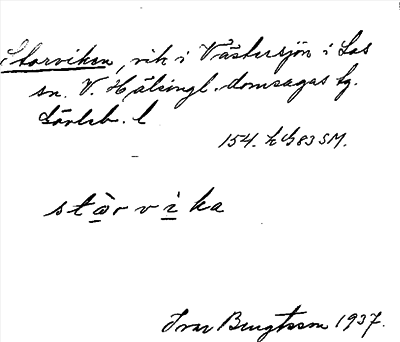 Storviken, vik i Västersjön i Los
sn. V. Hälsingl. domsagas tg.
Gävleb. l.
154. h. 83 SM.
stòrvika
Ivar Bengtsson 1937.